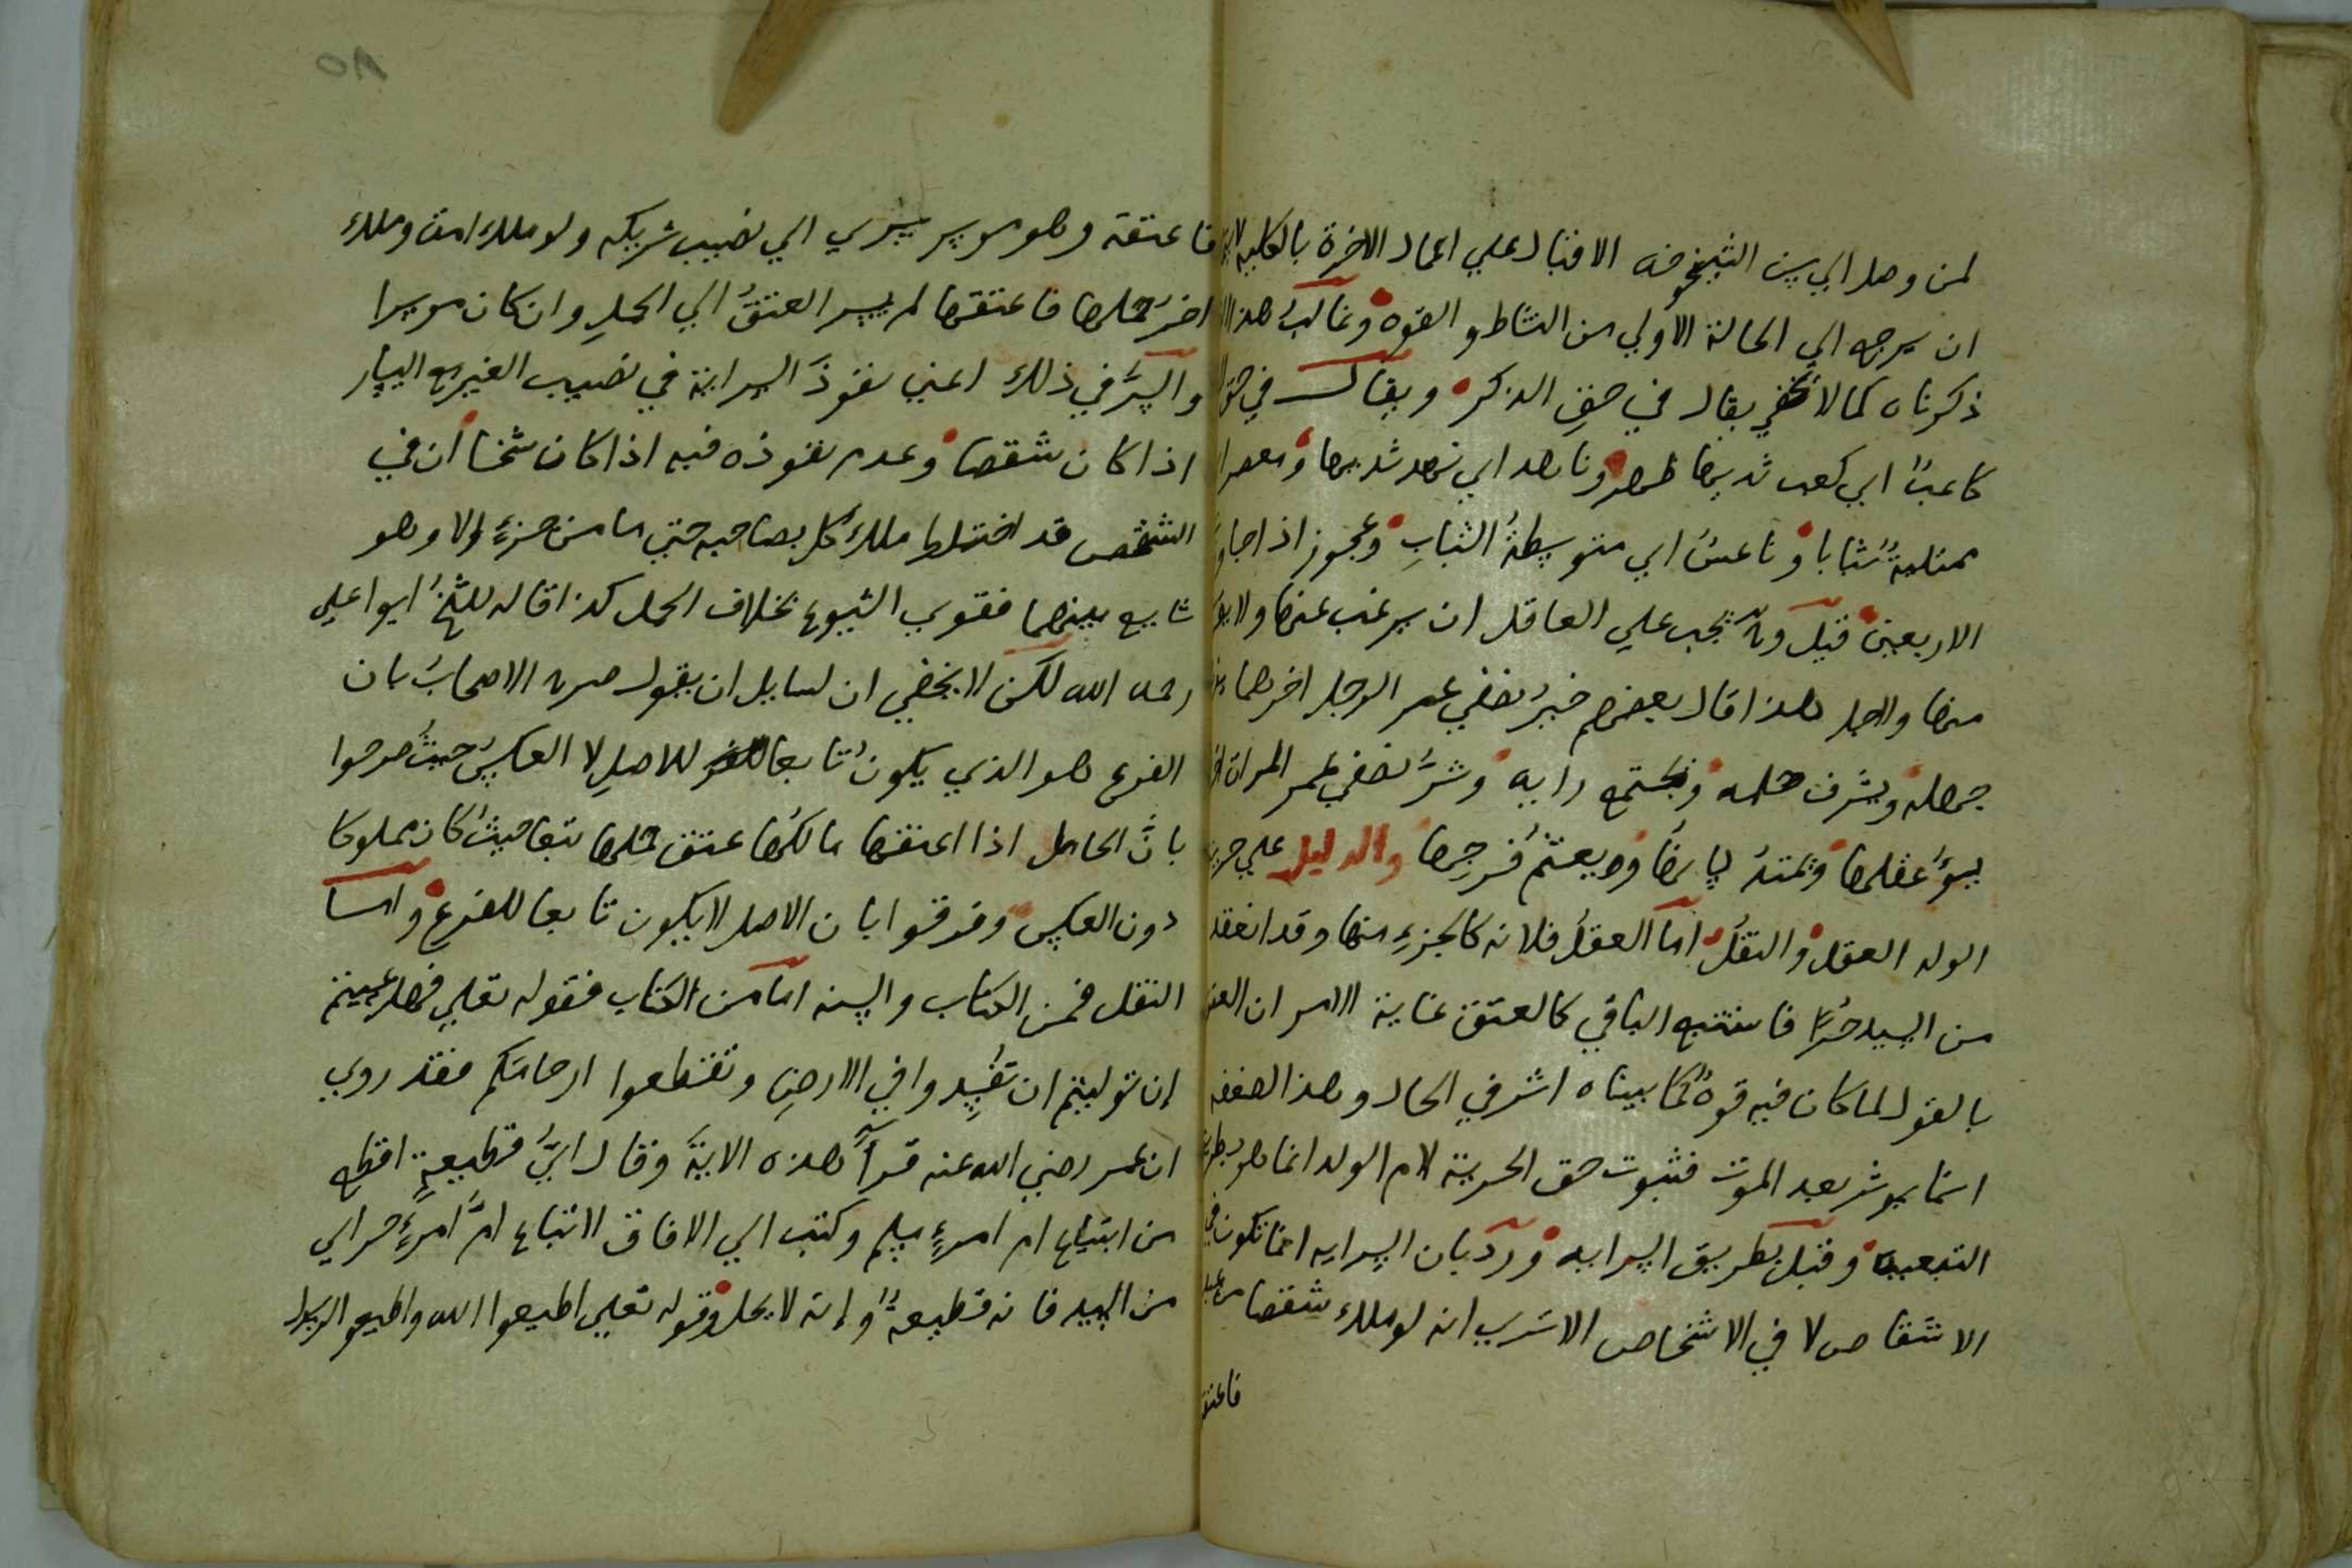 لمن وصل الي سن الشيخوخه الاقبال علي اعمال الاخرة بالكليه
ان يرجع الي الحالة الاولي من النشاط والقوه وغالب هذا
ذكرناه كما لا يخفي يقال في حق الذكر ويقال في حق
كاعب اي كعب ثديها ظهر وناهد اي نهد ثديها ومعصر
ممتلية شبابا وناعس اي متوسطة الشباب وعجوز اذا جاوز
الاربعين قيل وح يجب علي العاقل ان يرغب عنها ولا
منها ولاجل هذا قال بعضهم خير نصفي عمر الرجل اخرهما
جهله ويشرف حلمه ويجتمع رايه وشر نصفي عمر المراة
يسؤ عقلها ويمتد لسانها ويعقم فرجها والدليل علي حرية
الولد العقل والنقل اما العقل فلانه كالجزء منها وقد انعقد
من السيد حرا فاستتبع الباقي كالعتق غاية الامر ان العتق
بالقول لما كان فيه قوة كما بيناه اثر في الحال وهذا لضعفه
انما يوثر بعد الموت فثبوت حق الحرية لام الولد انما هو بطريق
التبعية وقيل بطريق السرايه ورد بان السرايه انما تكون في
الاشقاص لا في الاشخاص الا تري انه لو ملك شقصا من عبد
فاعتق
10
فاعتقه وهو موسر يسري الي نصيب شريكه ولو ملك امة وملك
اخر حملها فاعتقها لم يسر العتق الي الحمل وان كان موسرا
والسر في ذلك اعني نفوذ السراية في نصيب الغير مع اليسار
اذا كان شقصا وعدم نفوذه فيه اذا كان شخصا ان في
الشقص قد اختلط ملك كل بصاحبه حتي ما من جزء الا وهو
شايع بينهما فقوي الشيوع بخلاف الحمل كذا قاله الشيخ ابوا علي
رحمه الله لكن لا يخفي ان لسايل ان يقول صرح الاصحاب بان
الفرع هو الذي يكون تابعا للاصل لا العكس حيث صرحوا
بان الحامل اذا اعتقها مالكها عتق حملها تبعا حيث كان مملوكا
دون العكس وفرقوا بان الاصل لا يكون تابعا للفرع واما
النقل فمن الكتاب والسنه اما من الكتاب فقوله تعلي فهل عسيتم
إن توليتم ان تفسدوا في الارض وتقطعوا ارحامكم فقد روي
ان عمر رضي الله عنه قرأ هذه الاية وقال اي قطيعة اقطع
من ابتياع ام امرء مسلم وكتب الي الافاق لا تباع ام امرء حر اي
من السيد فانه قطيعة وإنه لا يحل وقوله تعلي اطيعوا الله واطيعوا الرسول